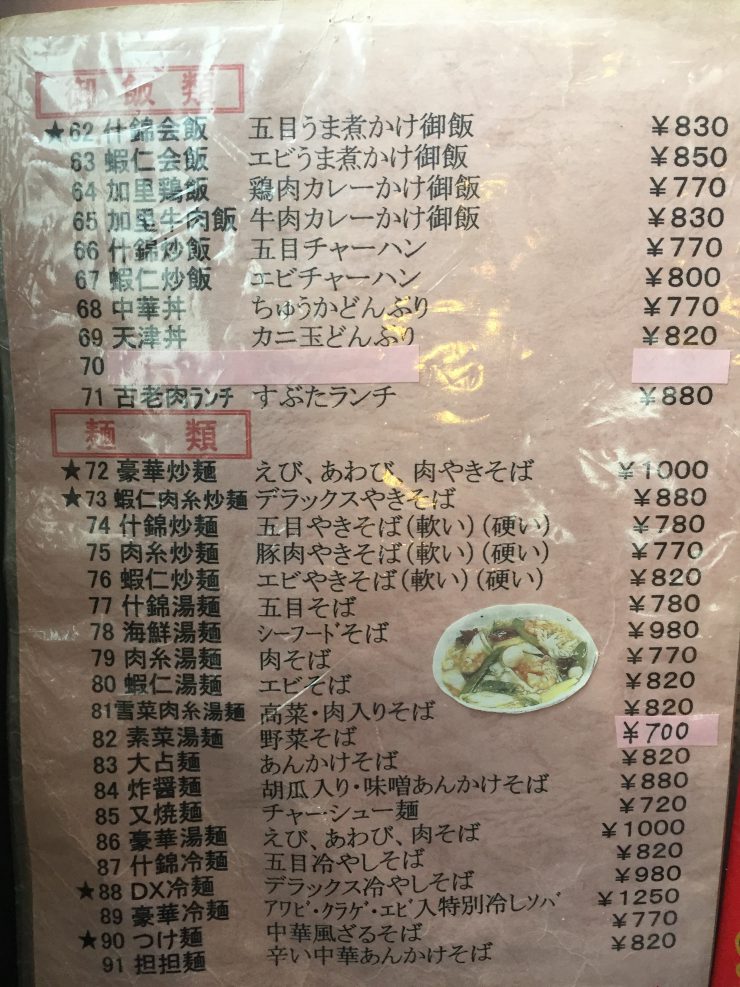 御飯類
★62 什錦会飯 五目うま煮かけ御飯 ￥830
63 蝦仁会飯 エビうま煮かけ御飯 ￥850
64 加里鶏飯 鶏肉カレーかけ御飯 ￥770
65 加里牛肉飯 牛肉カレーかけ御飯 ￥830
66 什錦炒飯 五目チャーハン ￥770
67 蝦仁炒飯 エビチャーハン ￥800
68 中華丼 ちゅうかどんぶり ￥770
69 天津丼 カニ玉どんぶり ￥820
70
71 古老肉ランチ すぶたランチ ￥880
麺類
★72 豪華炒麺 えび、あわび、肉やきそば ￥1000
★73 蝦仁肉糸炒麺 デラックスやきそば ￥880
74 什錦炒麺 五目やきそば(軟い)(硬い) ￥780
75 肉糸炒麺 豚肉やきそば(軟い)(硬い) ￥770
76 蝦仁炒麺 エビやきそば(軟い)(硬い) ￥820
77 什錦湯麺 五目そば ￥780
78 海鮮湯麺 シーフードそば ￥980
79 肉糸湯麺 肉そば ￥770
80 蝦仁湯麺 エビそば ￥820
81 雪菜肉糸湯麺 高菜・肉入りそば ￥820
82 素菜湯麺 野菜そば ￥700
83 大占麺 あんかけそば ￥820
84 炸醤麺 胡瓜入り・味噌あんかけそば ￥880
85 又焼麺 チャーシュー麺 ￥720
86 豪華湯麺 えび、あわび、肉そば ￥1000
87 什錦冷麺 五目冷やしそば ￥820
★88 DX冷麺 デラックス冷やしそば ￥980
89 豪華冷麺 アワビ・クラゲ・エビ入特別冷しソバ ￥1250
★90 つけ麺 中華風ざるそば ￥770
91 担担麺 辛い中華あんかけそば ￥820